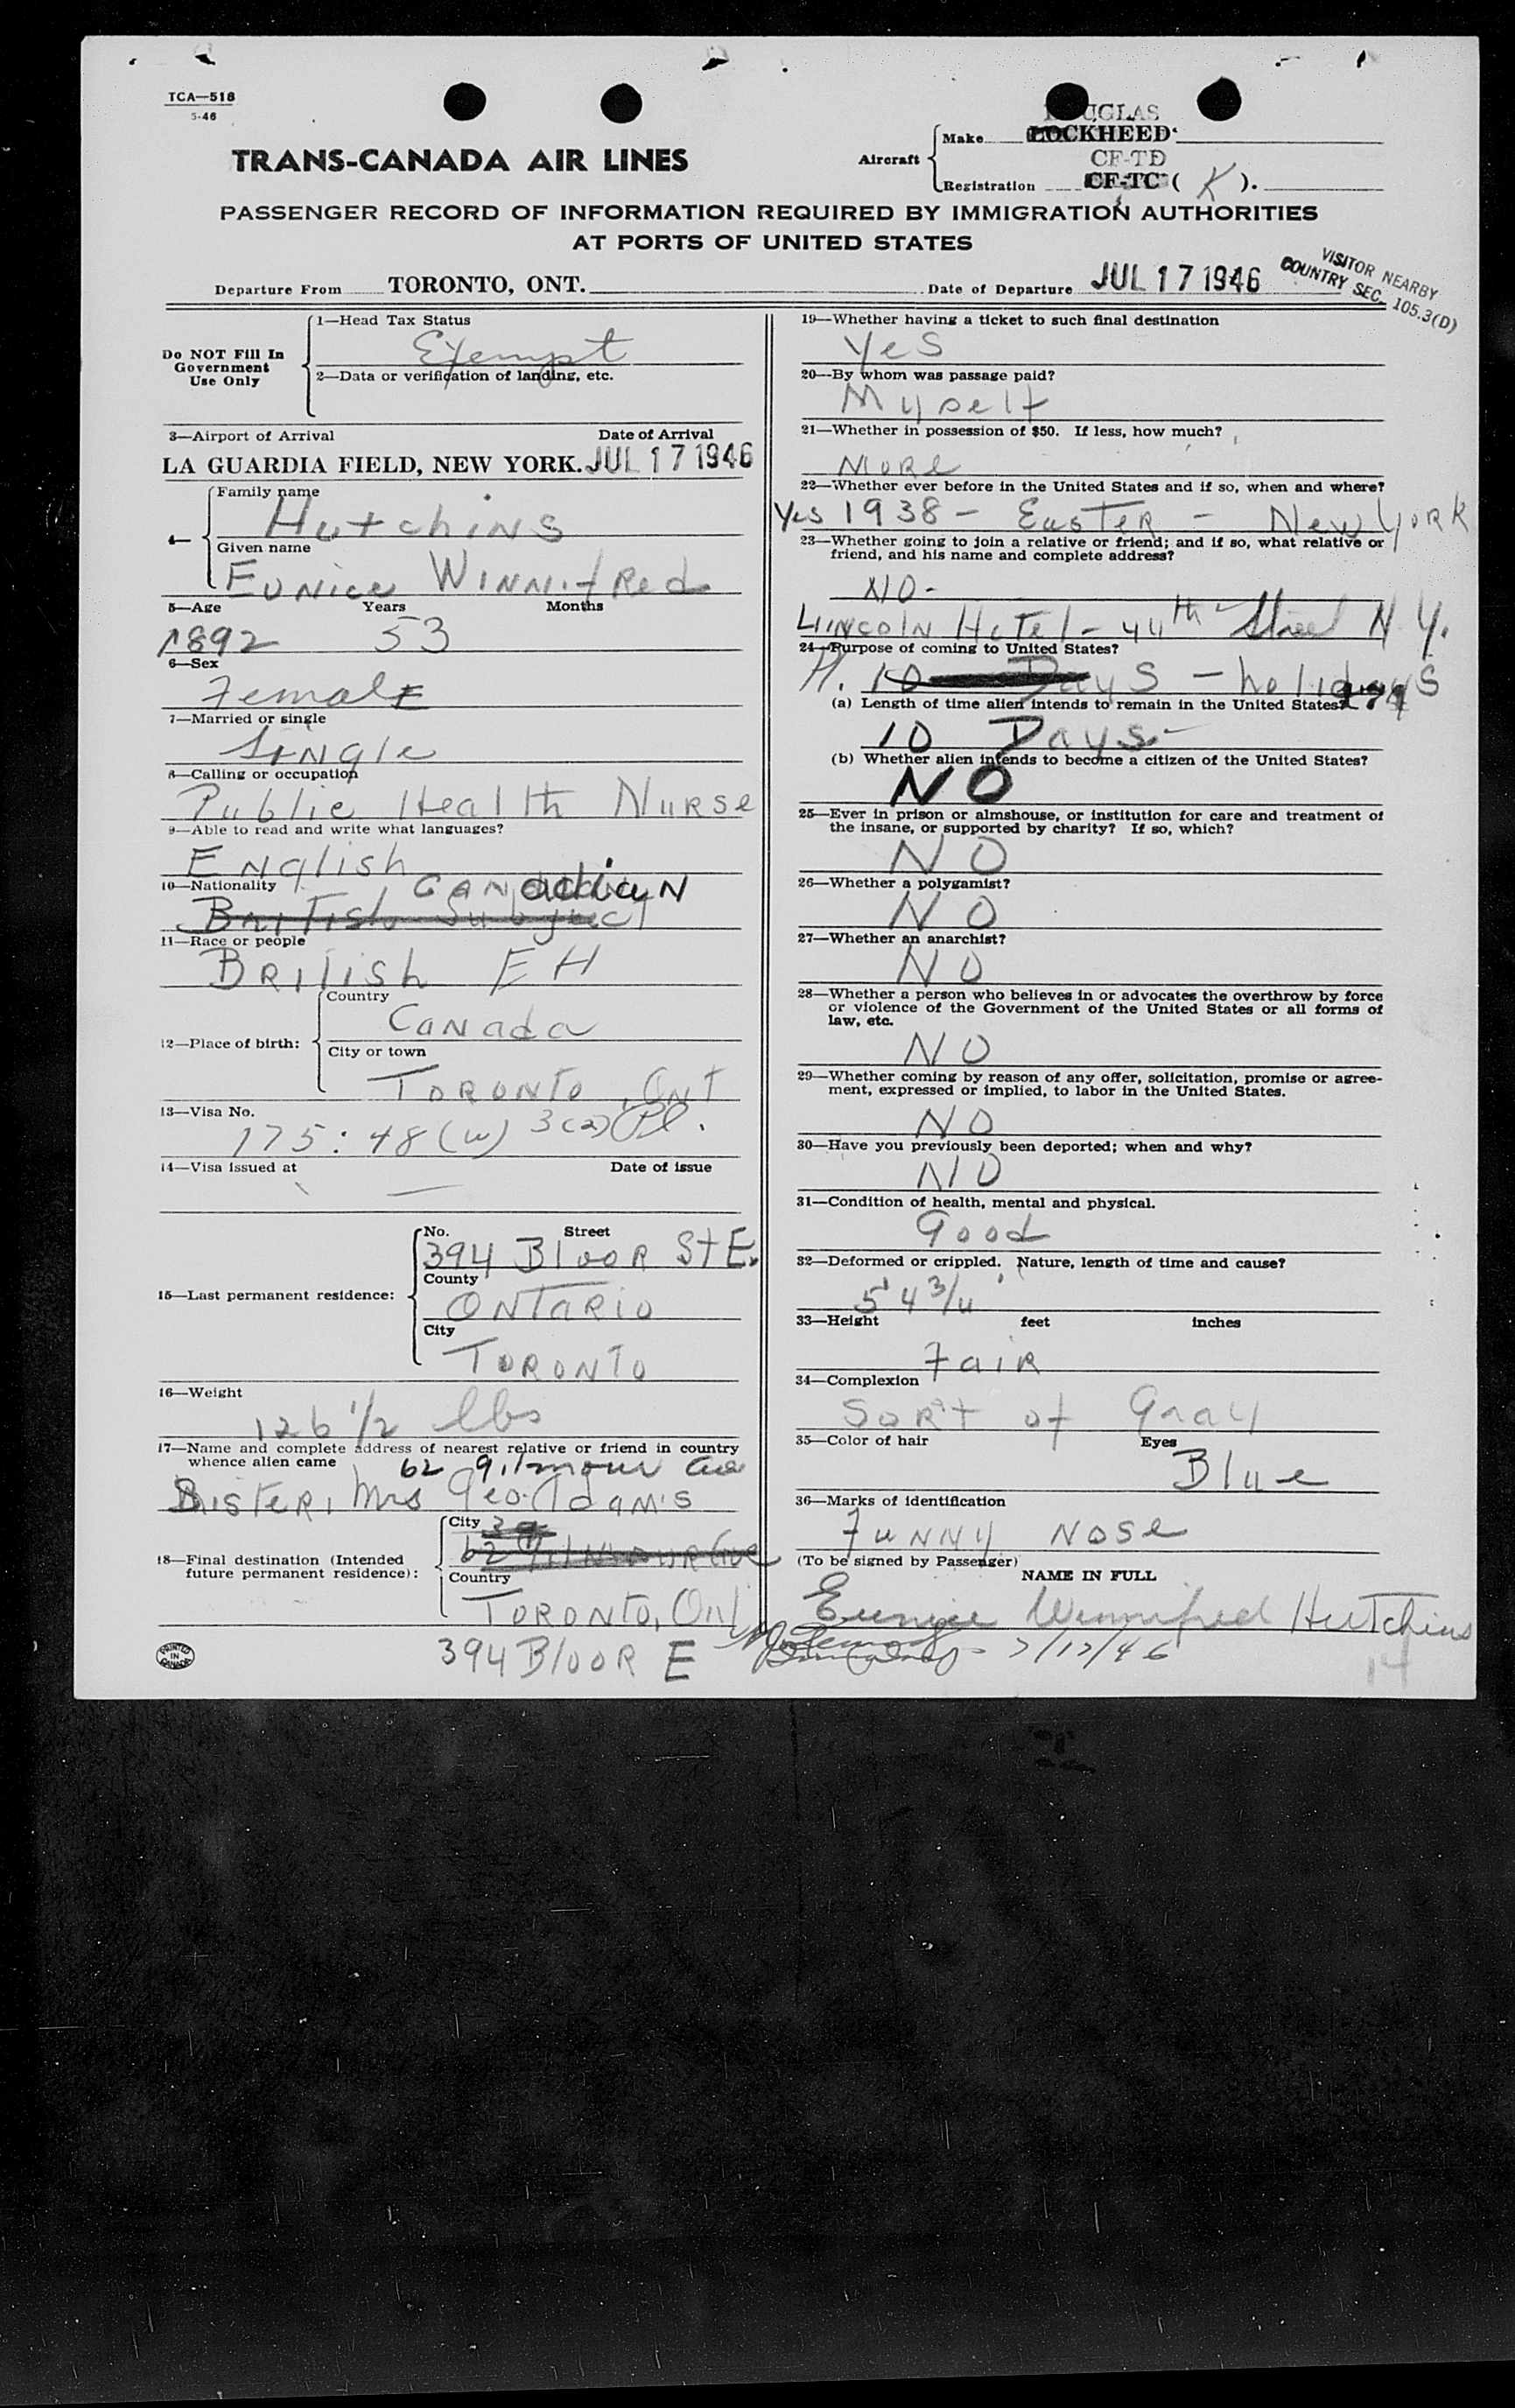 TCA—518
5-46
TRANS-CANADA AIR LINES
Aircraft
Make DOUGLAS
LOCKHEED
CF-TD
Registration CF-TC ( K ).
PASSENGER RECORD OF INFORMATION REQUIRED BY IMMIGRATION AUTHORITIES
AT PORTS OF UNITED STATES
Departure From TORONTO, ONT. Date of Departure JUL 17 1946
VISITOR NEARBY
COUNTRY SEC. 105.3(D)
Do NOT Fill In
Government
Use Only
1—Head Tax Status
Exempt
2—Data or verification of landing, etc.
3—Airport of Arrival Date of Arrival
LA GUARDIA FIELD, NEW YORK. JUL 17 1946
4—
Family name
Hutchins
Given name
Eunice Winnifred
5—Age Years Months
1892 53
6—Sex
Female
7—Married or single
Single
8—Calling or occupation
Public Health Nurse
9—Able to read and write what languages?
English
10—Nationality Canadian
British Subject
11—Race or people
British EH
12—Place of birth:
Country
Canada
City or town
Toronto, Ont
13—Visa No.
175:48(w) 3(2)
14—Visa issued at Date of issue
—
15—Last permanent residence:
No. Street
394 Bloor St E.
County
Ontario
City
Toronto
16—Weight
126 1/2 lbs
17—Name and complete address of nearest relative or friend in country
whence alien came 62 Gilmour Ave
Sister, Mrs Geo. Adams
18—Final destination (Intended
future permanent residence):
City 39
62 Gilmour Ave
Country
Toronto, Ont
394 Bloor E
PRINTED
IN
CANADA
19—Whether having a ticket to such final destination
Yes
20—By whom was passage paid?
Myself
21—Whether in possession of $50. If less, how much?
More
22—Whether ever before in the United States and if so, when and where?
Yes 1938 – Easter – New York
23—Whether going to join a relative or friend; and if so, what relative or
friend, and his name and complete address?
No-
Lincoln Hotel – 44th Street N.Y.
24—Purpose of coming to United States?
H. 10 Days – holidays
(a) Length of time alien intends to remain in the United States?
10 Days-
(b) Whether alien intends to become a citizen of the United States?
NO
25—Ever in prison or almshouse, or institution for care and treatment of
the insane, or supported by charity? If so, which?
NO
26—Whether a polygamist?
NO
27—Whether an anarchist?
NO
28—Whether a person who believes in or advocates the overthrow by force
or violence of the Government of the United States or all forms of
law, etc.
NO
29—Whether coming by reason of any offer, solicitation, promise or agree-
ment, expressed or implied, to labor in the United States.
NO
30—Have you previously been deported; when and why?
NO
31—Condition of health, mental and physical.
Good
32—Deformed or crippled. Nature, length of time and cause?
5' 4 3/4
33—Height feet inches
Fair
34—Complexion
Sort of Gray
35—Color of hair Eyes
Blue
36—Marks of identification
Funny Nose
(To be signed by Passenger)
NAME IN FULL
Eunice Winnifred Hutchins
7/17/46
14